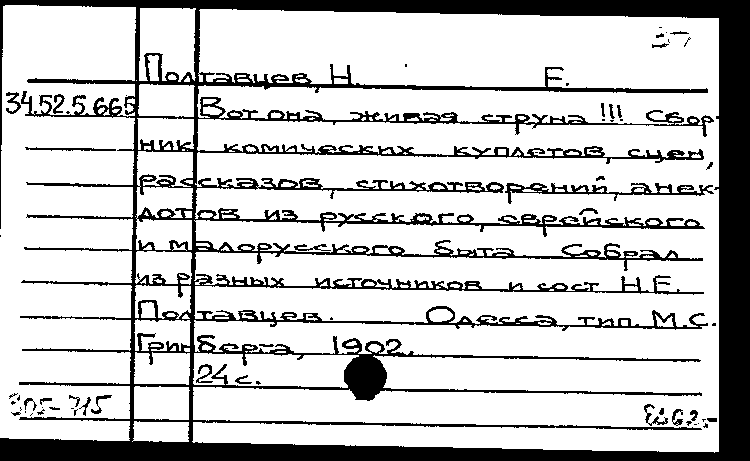 37
Полтавцев, Н. Е.
34.52.5.665 Вот она, живая струна!!! Сбор-
ник комических куплетов, сцен,
рассказов, стихотворений, анек-
дотов из русского, еврейского
и малорусского быта Собрал
из разных источников и сост Н.Е.
Полтавцев. Одесса, тип. М.С.
Гринберга, 1902.
24 с.
305-715